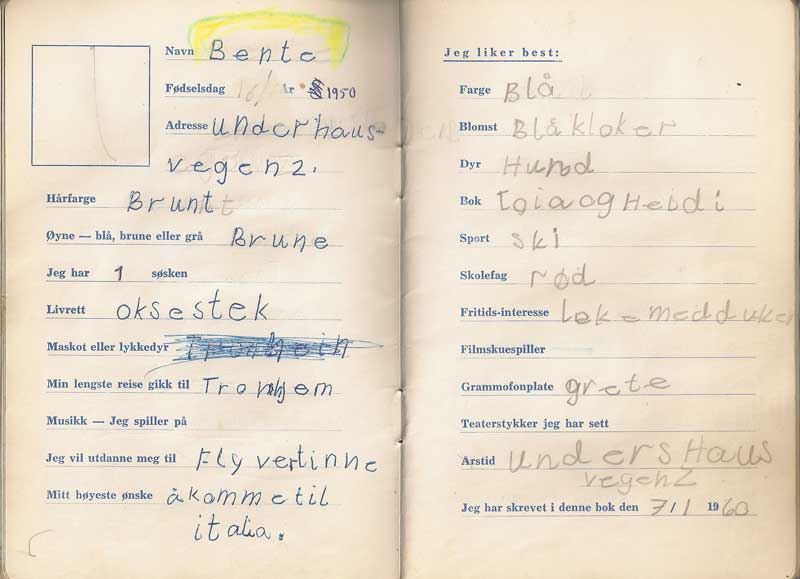 Navn Bente
Fødselsdag 16/ År 1950
Adresse underhaus-
vegen 2.
Hårfarge Brunt
Øyne — blå, brune eller grå Brune
Jeg har 1 søsken
Livrett oksestek
Maskot eller lykkedyr
Min lengste reise gikk til Tronhjem
Musikk — Jeg spiller på
Jeg vil utdanne meg til Fly vertinne
Mitt høyeste ønske å komme til
italia.
Jeg liker best:
Farge Blå
Blomst Blåkloker
Dyr Hund
Bok og Heidi
Sport ski
Skolefag rød
Fritids-interesse leke med duker
Filmskuespiller
Grammofonplate grete
Teaterstykker jeg har sett
Årstid undersHaus
vegen 2
Jeg har skrevet i denne bok den 7/1 1960